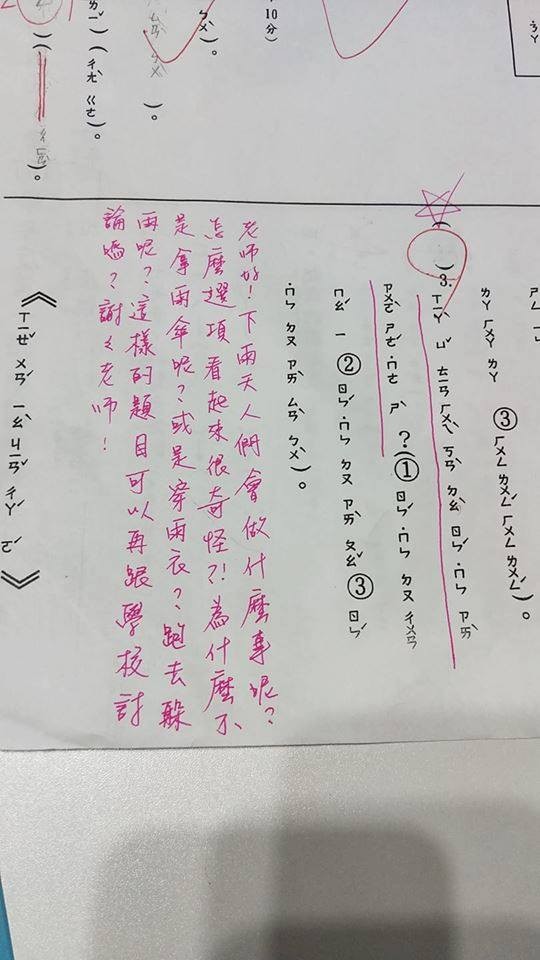 10分）
ㄅㄨˋ）。
ㄙㄢˋ ㄅㄨˋ ）。
）（ㄔㄤˋ ㄍㄜ
）。
ㄌㄚ ㄏㄨㄚ ㄌㄚ ③ㄏㄨㄥ ㄌㄨㄥˊ ㄏㄨㄥ ㄌㄨㄥˊ）。
（ ）3.ㄒㄧㄚˋ ㄩˇ ㄊㄧㄢ ㄏㄨㄟˋ ㄎㄢˋ ㄉㄠˋ ㄖㄣˊ ˙ㄇㄣ ㄗㄞˋ
ㄗㄨㄛˋ ㄕㄜˊ ˙ㄇㄜ ㄕˋ？（①ㄖㄣˊ ˙ㄇㄣ ㄉㄡ ㄔㄨㄢ
ㄇㄠˊ ㄧ ②ㄖㄣˊ ˙ㄇㄣ ㄉㄡ ㄗㄞˋ ㄆㄠˇ ③ㄖㄣˊ
˙ㄇㄣ ㄉㄡ ㄗㄞˋ ㄙㄢˋ ㄅㄨˋ）。
老師好！下雨天人們會做什麼事呢？
怎麼選項看起來很奇怪？！為什麼不
是拿雨傘呢？或是穿雨衣？跑去躲
雨呢？這樣的題目可以再跟學校討
論嗎？謝々老師！
《ㄒㄧㄝˇ ㄨㄢˊ ㄧㄠˋ ㄐㄧㄢˇ ㄔㄚˊ ㄛˋ》